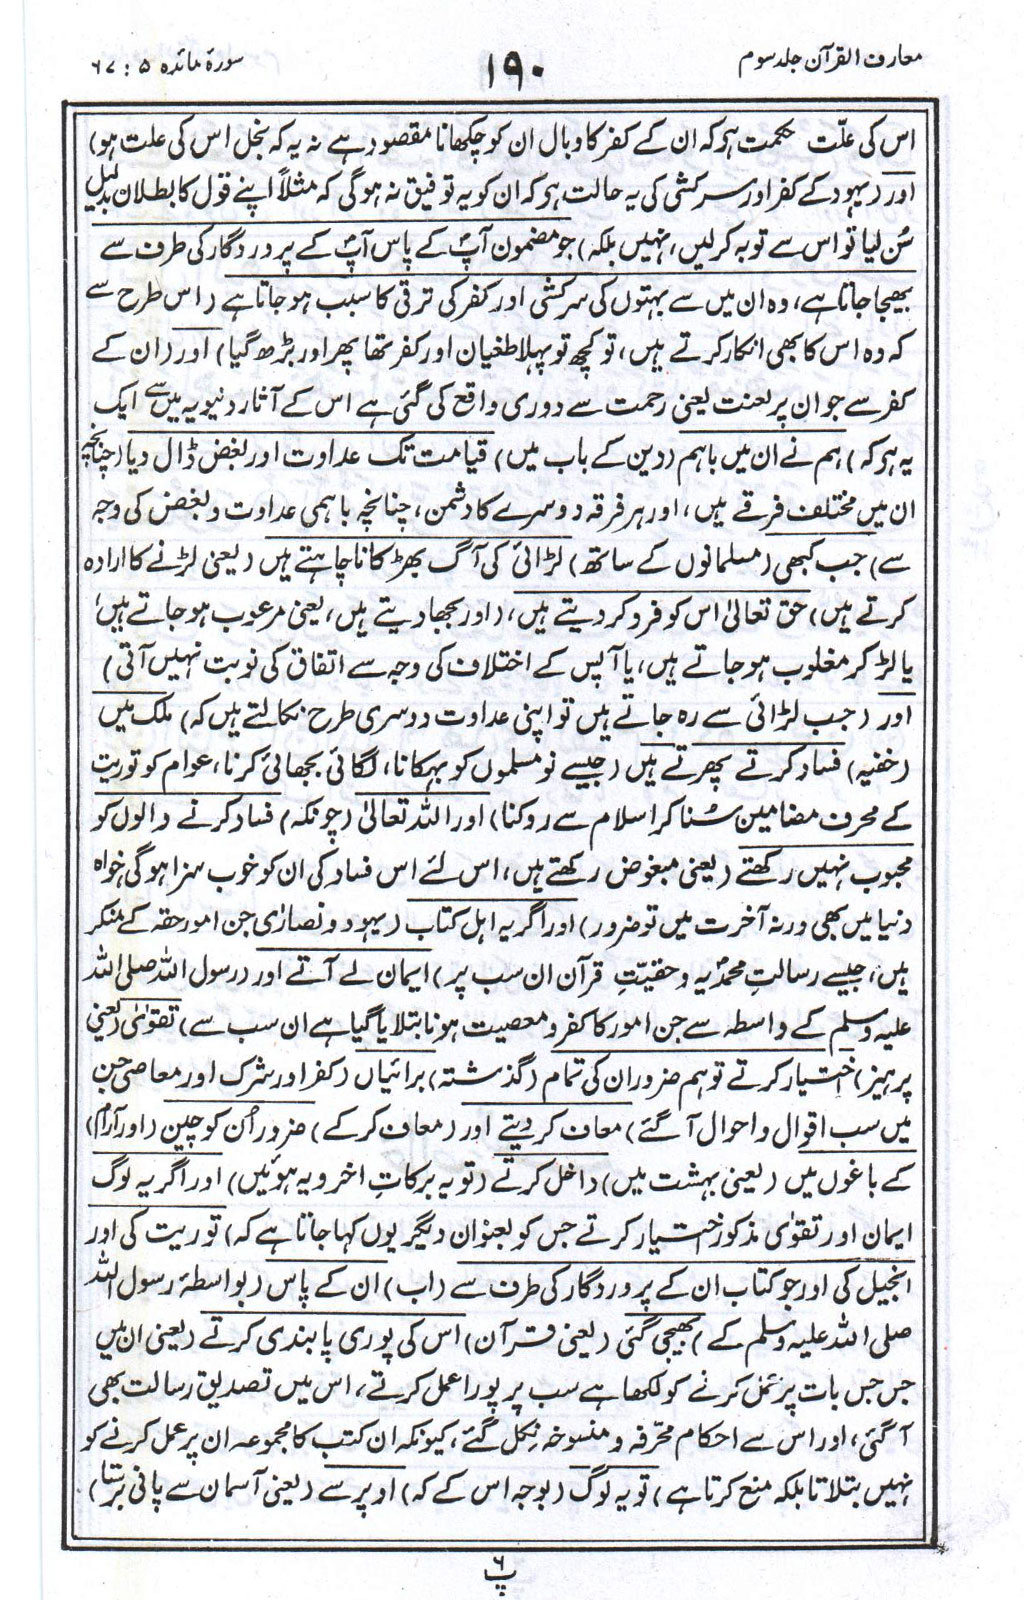 معارف القرآن جلد سوم
۱۹۰
سورۂ مائدہ ۵ : ۶۷
اس کی علّت حکمت ہو کہ ان کے کفر کا وبال ان کو چکھانا مقصود ہے نہ یہ کہ بخل اس کی علت ہو)
اور (یہود کے کفر اور سرکشی کی یہ حالت ہو کہ ان کو یہ توفیق نہ ہوگی کہ مثلاً اپنے قول کا بطلان بدلیل
سُن لیا تو اس سے توبہ کرلیں، نہیں بلکہ) جو مضمون آپؐ کے پاس آپؐ کے پروردگار کی طرف سے
بھیجا جاتا ہے، وہ ان میں سے بہتوں کی سرکشی اور کفر کی ترقی کا سبب ہو جاتا ہے (اس طرح سے
کہ وہ اس کا بھی انکار کرتے ہیں، تو کچھ تو پہلا طغیان اور کفر تھا پھر اور بڑھ گیا) اور (ان کے
کفر سے جو ان پر لعنت یعنی رحمت سے دوری واقع کی گئی ہے اس کے آثار دنیویہ میں سے ایک
یہ ہو کہ) ہم نے ان میں باہم (دین کے باب میں) قیامت تک عداوت اور بغض ڈال دیا (چنانچہ
ان میں مختلف فرقے ہیں، اور ہر فرقہ دوسرے کا دشمن، چنانچہ باہمی عداوت و بغض کی وجہ
سے) جب کبھی (مسلمانوں کے ساتھ) لڑائی کی آگ بھڑکانا چاہتے ہیں (یعنی لڑنے کا ارادہ
کرتے ہیں) حق تعالیٰ اس کو فرو کر دیتے ہیں، (اور بجھا دیتے ہیں، یعنی مرعوب ہو جاتے ہیں،
یا لڑ کر مغلوب ہو جاتے ہیں، یا آپس کے اختلاف کی وجہ سے اتفاق کی نوبت نہیں آتی)
اور (جب لڑائی سے رہ جاتے ہیں تو اپنی عداوت دوسری طرح نکالتے ہیں کہ) ملک میں
(خفیہ) فساد کرتے پھرتے ہیں (جیسے نو مسلموں کو بہکانا، لگائی بجھائی کرنا، عوام کو توریت
کے محرف مضامین سُنا کر اسلام سے روکنا) اور اللہ تعالیٰ (چونکہ) فساد کرنے والوں کو
محبوب نہیں رکھتے (یعنی مبغوض رکھتے ہیں، اس لئے اس فساد کی ان کو خوب سزا ہوگی خواہ
دنیا میں بھی ورنہ آخرت میں تو ضرور) اور اگر یہ اہل کتاب (یہود و نصاریٰ جن امور حقہ کے منکر
ہیں، جیسے رسالتِ محمدؐیہ و حقیّتِ قرآن ان سب پر) ایمان لے آتے اور (رسول اللہ صلی اللہ
علیہ وسلم کے واسطہ سے جن امور کا کفر و معصیت ہونا بتلایا گیا ہے ان سب سے) تقویٰ (یعنی
پرہیز) اختیار کرتے تو ہم ضرور ان کی تمام (گذشتہ) برائیاں (کفر اور شرک اور معاصی جن
میں سب اقوال و احوال آ گئے) معاف کر دیتے اور (معاف کر کے) ضرور اُن کو چین (اور آرام)
کے باغوں میں (یعنی بہشت میں) داخل کرتے (تو یہ برکاتِ اخرویہ ہوئیں) اور اگر یہ لوگ
ایمان اور تقویٰ مذکور اختیار کرتے جس کو بعنوان دیگر یوں کہا جاتا ہے کہ) توریت کی اور
انجیل کی اور جو کتاب ان کے پروردگار کی طرف سے (اب) ان کے پاس (بواسطۂ رسول اللہ
صلی اللہ علیہ وسلم کے) بھیجی گئی (یعنی قرآن) اس کی پوری پابندی کرتے (یعنی ان میں
جس جس بات پر عمل کرنے کو لکھا ہے سب پر پورا عمل کرتے، اس میں تصدیق رسالت بھی
آ گئی، اور اس سے احکام محرّفہ و منسوخہ نکل گئے، کیونکہ ان کتب کا مجموعہ ان پر عمل کرنے کو
نہیں بتلاتا بلکہ منع کرتا ہے) تو یہ لوگ (بوجہ اس کے کہ) اوپر سے (یعنی آسمان سے پانی برستا)
۶
پ